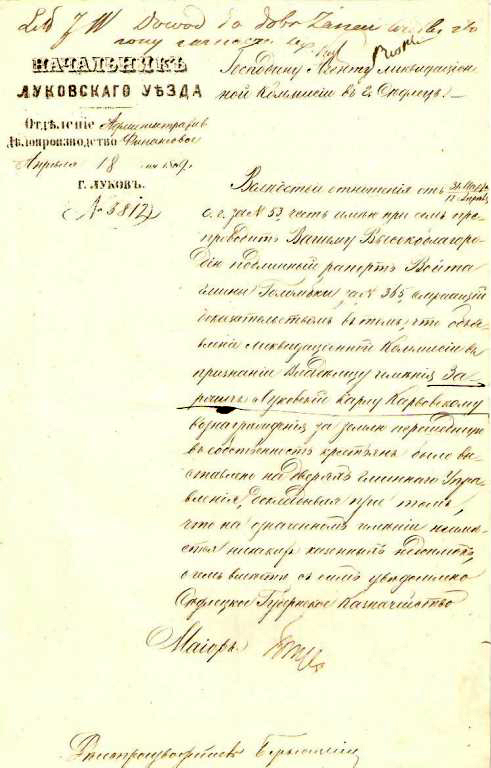 Dowod do dobr
НАЧАЛЬНИКЪ
ЛУКОВСКАГО УѢЗДА
Отдѣленіе Административ
Дѣлопроизводство Финансовое
Апрѣля 18 дня 1869
Г. ЛУКОВЪ.
№ 3812
Господину Агенту Ликвидаціон
ной Коммисіи въ г. Сѣдлецѣ.
Вслѣдствіе отношенія отъ
с. г. за № 53 часть имѣю при семъ пре
проводить Вашему Высокоблагоро
дію подлинный рапортъ Войта
Гмины за № 365, служащій
доказательствомъ въ томъ, что объя
вленіе Ликвидаціонной Коммисіи въ
признаніи Владѣльцу имѣнія За
Луковскій Карлу Карвовскому
вознагражденія за землю перешедшую
въ собственность крестьянъ было вы
ставлено на дверяхъ Гминнаго Упра
вленія, докладывая при томъ,
что на означенномъ имѣніи
никакихъ казенныхъ недоимокъ,
о чемъ вмѣстѣ съ симъ увѣдомлено
Сѣдлецкое Губернское Казначейство
Маіоръ
Дѣлопроизводитель